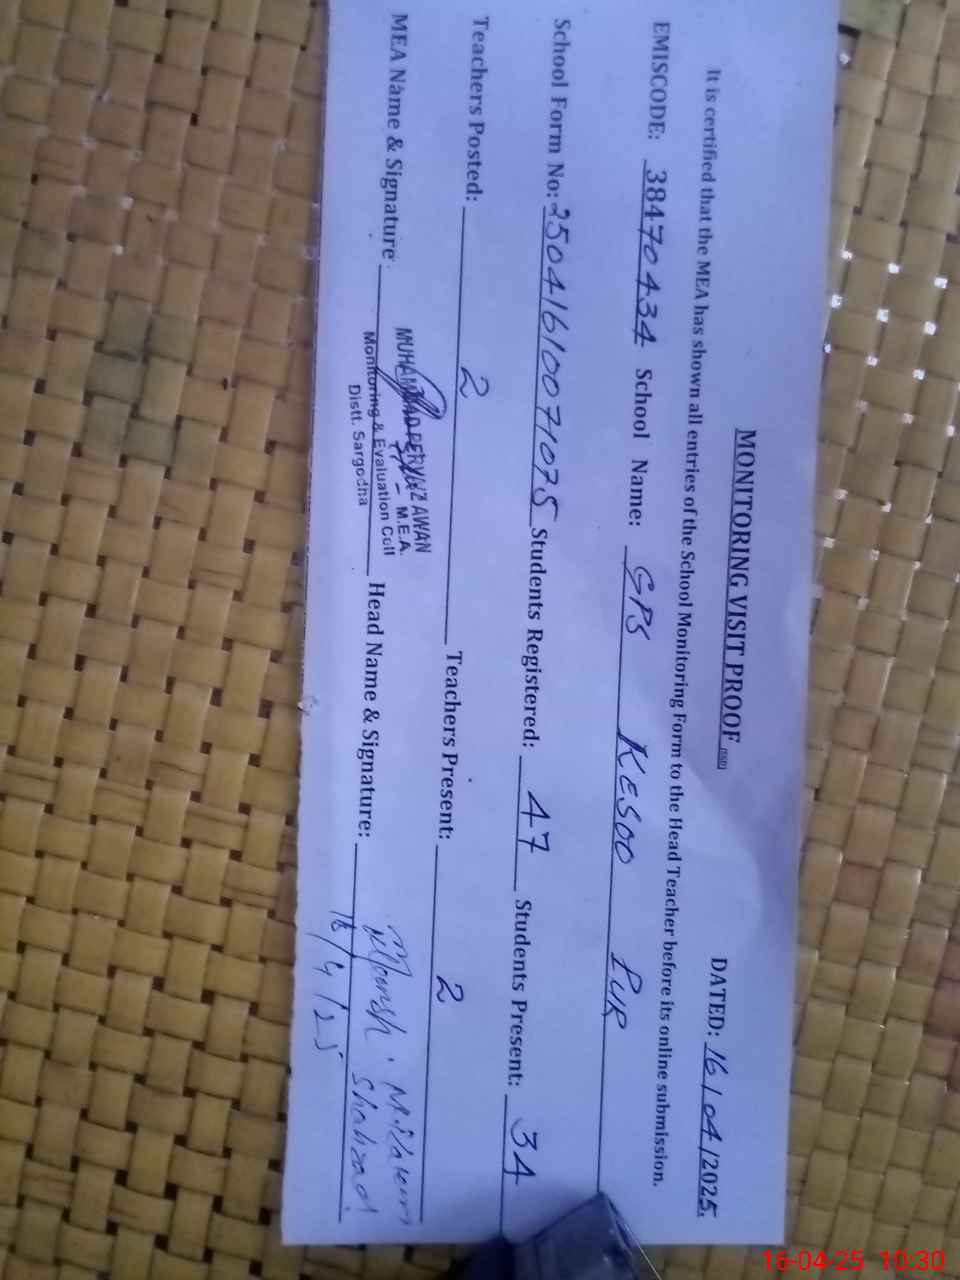 MONITORING VISIT PROOF (SSD)
DATED: 16/04/2025.
It is certified that the MEA has shown all entries of the School Monitoring Form to the Head Teacher before its online submission.
EMISCODE: 38470434 School Name: GPS KESOO PUR
School Form No: 25041610071075 Students Registered: 47 Students Present: 34
Teachers Posted: 2 Teachers Present: 2
MEA Name & Signature: Head Name & Signature:
MUHAMMAD PERVAIZ AWAN
M.E.A.
Monitoring & Evaluation Cell
Distt. Sargodha
Shahzad
16/4/25
16-04-25 10:30